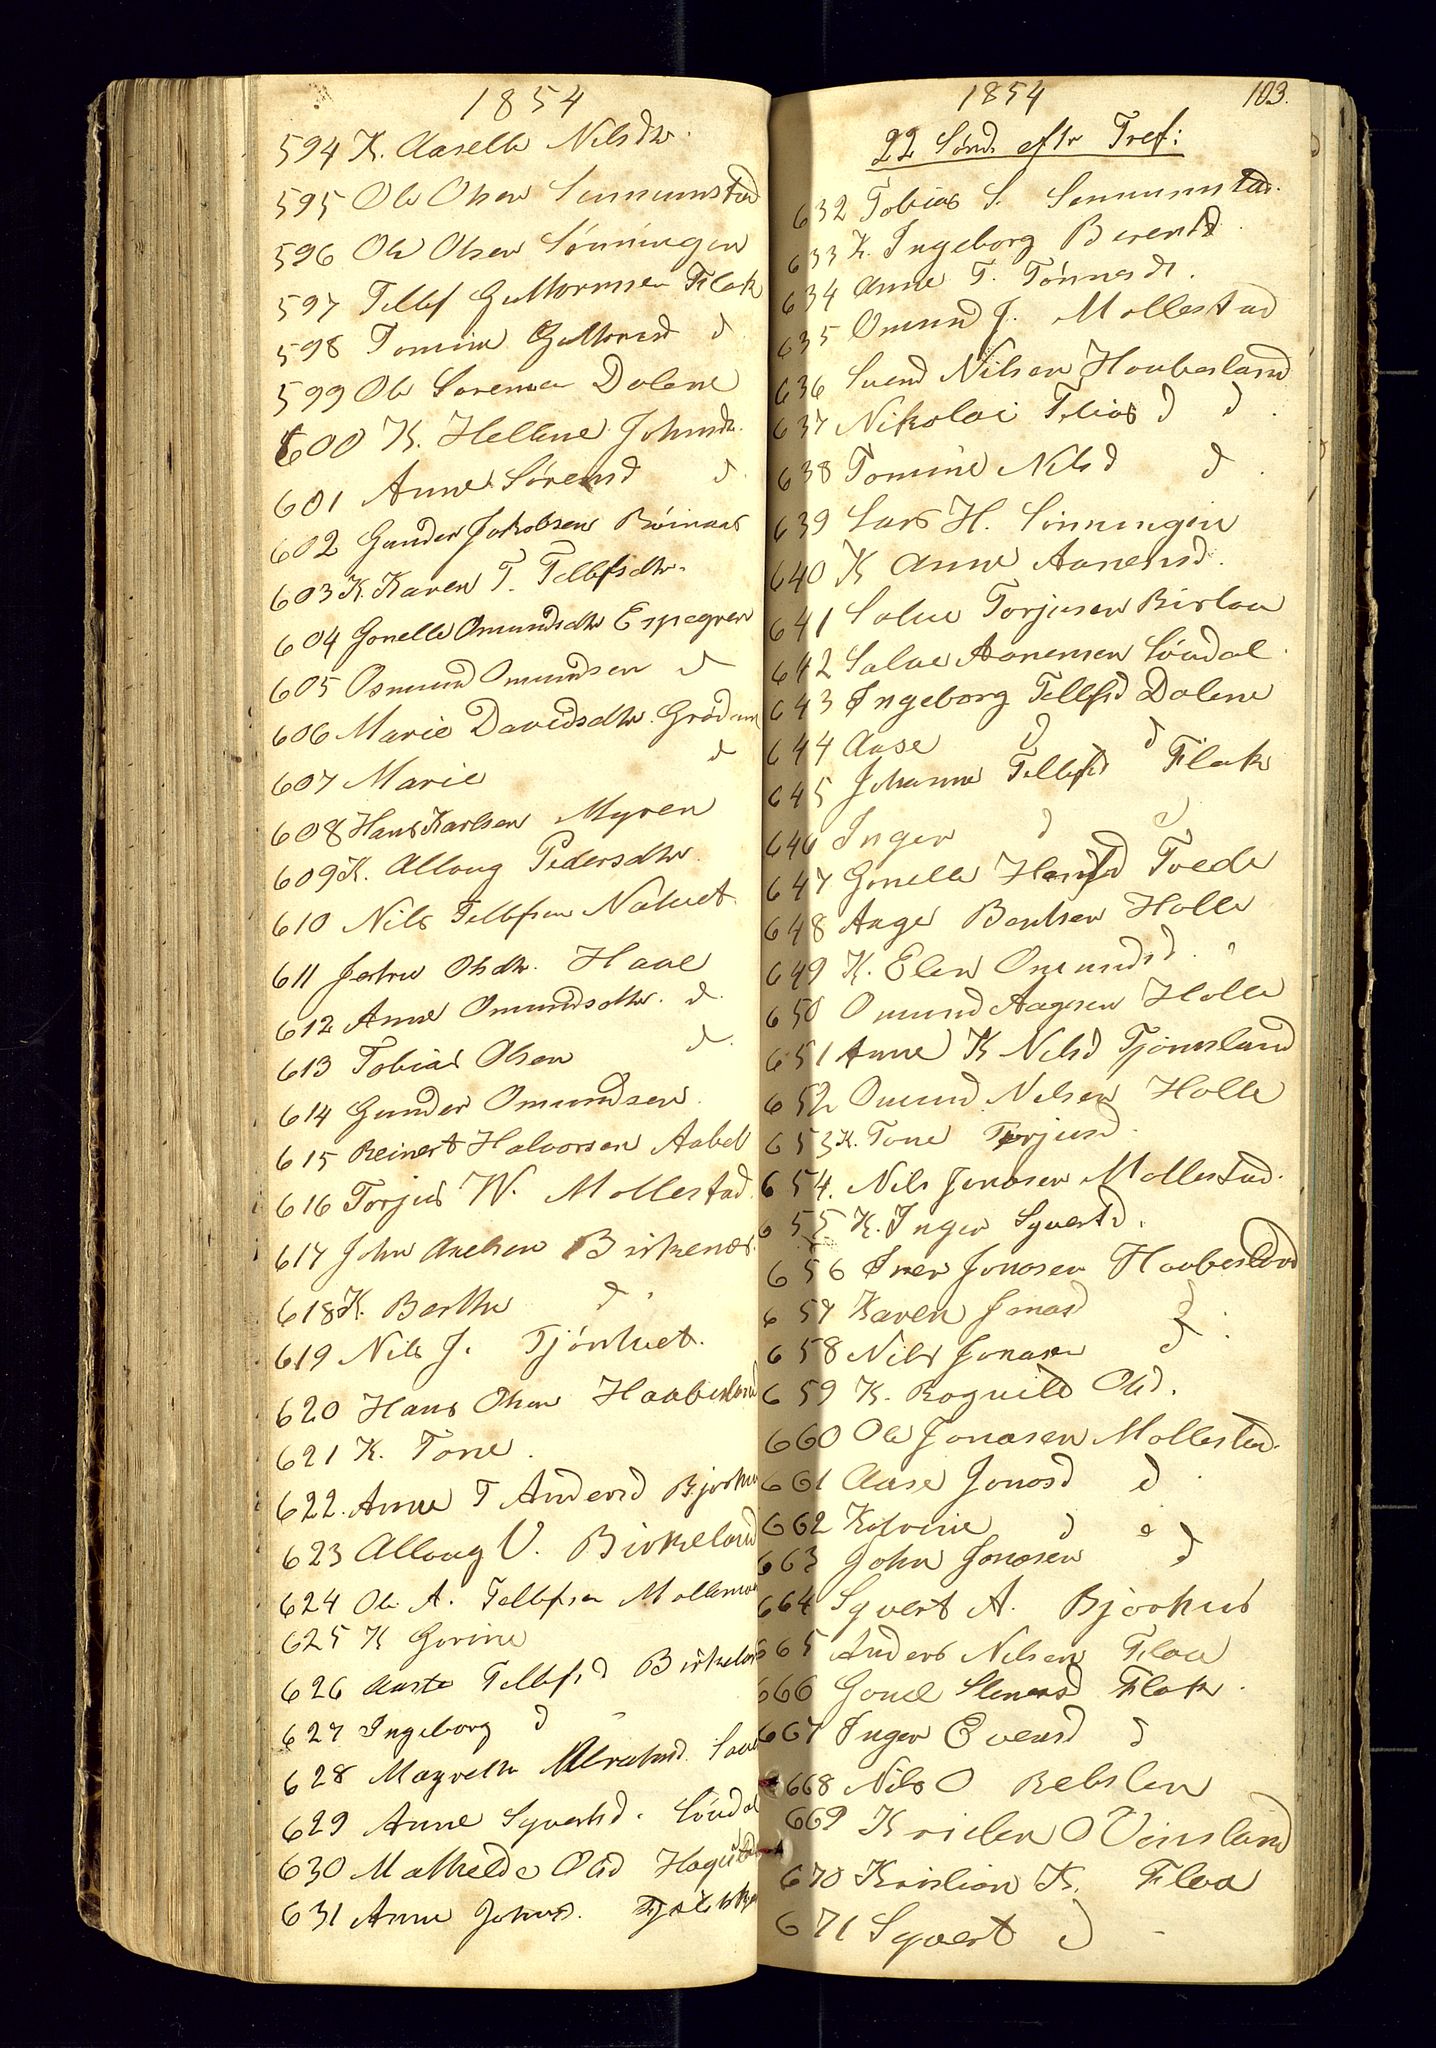 1854
594 K. Aaselle Nilsdtr.
595 Ole Olsen Senumstad
596 Ole Olsen Sønningen
597 Tellef Guttormsen Flak
598 Tomine Guttormsd d
599 Ole Sørensen Dalene
600 K. Hellene Johnsdtr.
601 Anne Sørensd d
602 Gunder Jakobsen Røinaas
603 K. Karen T. Tellefsdtr.
604 Gonelle Omundsdtr Espegren
605 Osmund Omundsen d
606 Marie Davidsdtr. Grødum
607 Marie d
608 Hans Karlsen Myren
609 K. Alloug Pedersdtr.
610 Nils Tellefsen
611 Olsdtr. Haae
612 Anne Omundsdtr. d.
613 Tobias Olsen d.
614 Gunder Omundsen
615 Reinert Halvorsen Aabel
616 Torjus W. Mollestad
617 John Axelsen Birkenes.
618 K. Berthe d.
619 Nils J. Tjønhvet.
620 Hans Olsen Haabesland
621 K. Tone.
622. Anne T Andersd
623 Alloug V. Birkeland
624 Ole A. Tellefsen
625 K Gorine
626 Aaste Tellefsd
627 Ingeborg d "
628 Magrethe
629 Anne Syvertsd. Søndal
630 Mathelde Olsd
631 Anne
1854 103.
22 Sønd. eftr Tref:
632 Tobias S. Senumstad.
633 K. Ingeborg Berentsd.
634 Anne T. Tønnesd.
635 Omund J. Mollestad
636 Svend Nilsen Haabesland
637 Nikolai Tobias d d.
638 Tomine Nilsd d.
639 Lars H. Sønningen
640 K Anne Aanensd.
641 Salve Torjusen
642 Salve Aanensen Søndal.
643 Ingeborg Tellefsd Dalene
644 Aase d d
645 Johanne Tellefsd Flak
646 Inger d d
647 Gonelle Hansd Tvede
648 Aage Bentsen Holle
649 K. Elen Omundsd.
650 Omund Aagesen Holle
651 Anne K Nilsd Tjømsland
652 Omund Nilsen Holle
653 K. Tone Torjusd.
654. Nils Jonasen Mollestad.
655 K. Inger Syvertsd.
656 Iver Jonasen Haabesland
657 Karen Jonasd d.
658 Nils Jonasen d
659 K. Rognild Olsd.
660 Ole Jonasen Mollestad.
661 Aase Jonasd d
662 d d
663 John Jonasen d
664 Syvert A. Bjorhus
665 Anders Nilsen Flaa
666 Flak.
667 Inger Evensd d
668 Nils O Rebslen
669 O Vinsland
670 Kristian K. Flaa
671 Syvert d -